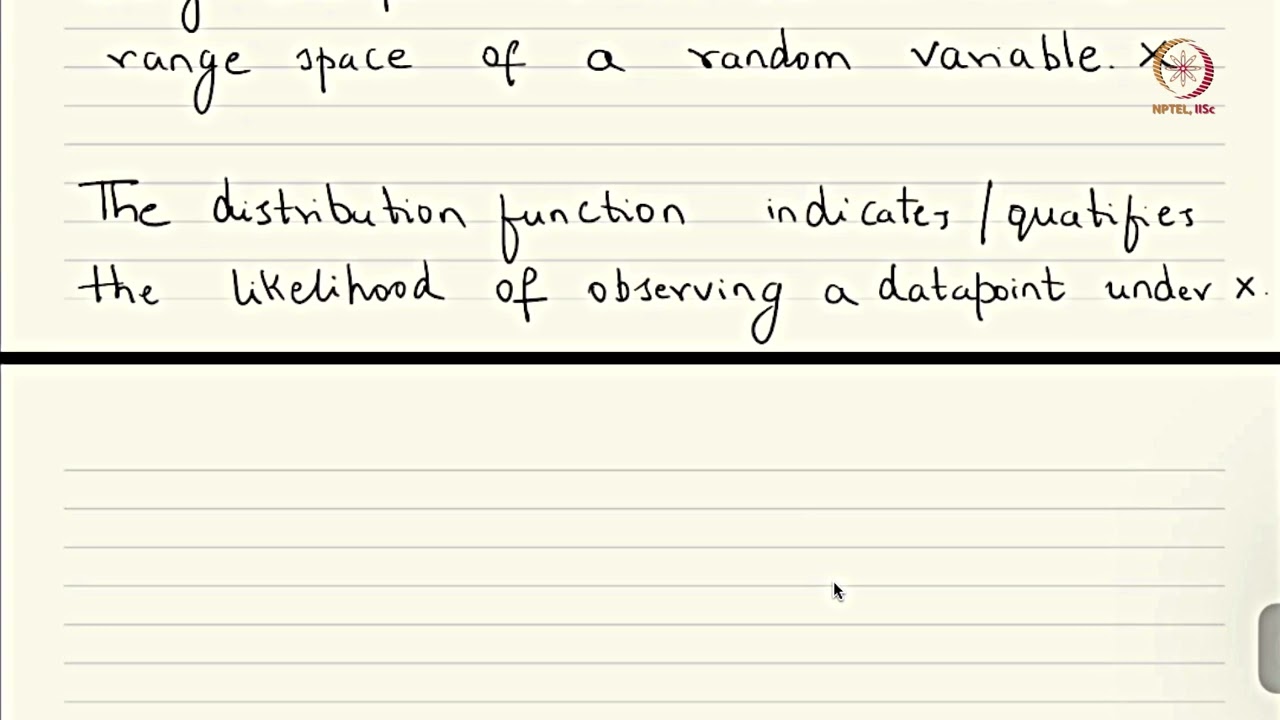 range space of a random variable. x
NPTEL, IISc
The distribution function indicates / quatifies
the likelihood of observing a datapoint under x.